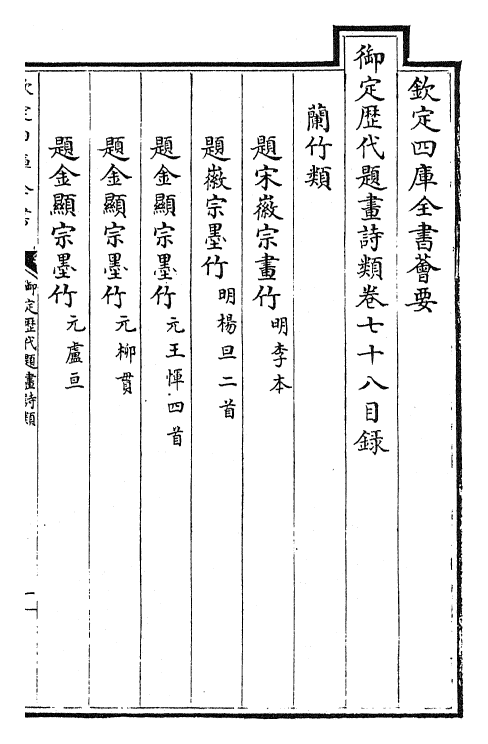 欽定四庫全書薈要
御定歴代題畫詩類卷七十八目録
蘭竹類
題宋徽宗畫竹 明李本
題徽宗墨竹 明楊旦二首
題金顯宗墨竹 元王惲四首
題金顯宗墨竹 元柳貫
題金顯宗墨竹 元盧亘
御定歴代題畫詩類